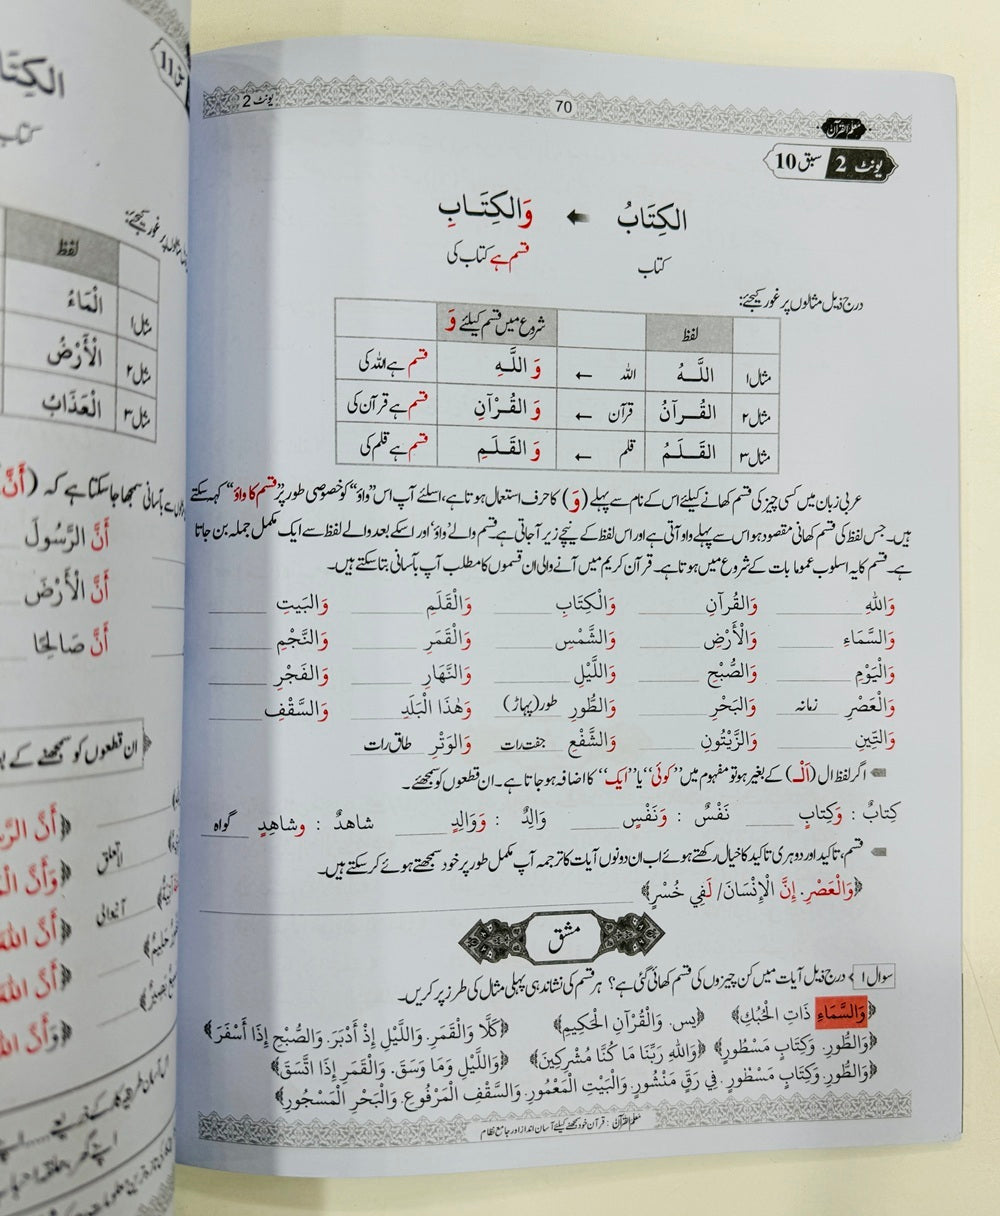 معلم القرآن
70
یونٹ 2
یونٹ 2 سبق 10
الكِتَابُ ← وَالكِتَـابِ
کتاب قسم ہے کتاب کی
درج ذیل مثالوں پر غور کیجئے:
لفظ شروع میں قسم کیلئے وَ
مثال۱ اللَّـهُ اللہ ← وَ اللَّـهِ قسم ہے اللہ کی
مثال۲ القُـرآنُ قرآن ← وَ القُـرْآنِ قسم ہے قرآن کی
مثال۳ القَـلَمُ قلم ← وَ القَـلَمِ قسم ہے قلم کی
عربی زبان میں کسی چیز کی قسم کھانے کیلئے اس کے نام سے پہلے (وَ) کا حرف استعمال ہوتا ہے، اسلئے آپ اس "واؤ" کو خصوصی طور پر "قسم کا واؤ" کہہ سکتے
ہیں۔ جس لفظ کی قسم کھانی مقصود ہو اس سے پہلے واو آتی ہے اور اس لفظ کے نیچے زیر آجاتی ہے۔ قسم والے 'واؤ' اور اسکے بعد والے لفظ سے ایک مکمل جملہ بن جاتا
ہے۔ قسم کا یہ اسلوب عموما بات کے شروع میں ہوتا ہے۔ قرآن کریم میں آنے والی ان قسموں کا مطلب آپ بآسانی بتا سکتے ہیں۔
وَاللهِ وَالْقُرآنِ وَالْكِتَابِ وَالْقَلَمِ وَالبَيتِ
وَالسَّمَاءِ وَالْأَرْضِ وَالشَّمْسِ وَالْقَمَرِ وَالنَّجْمِ
وَالْيَوْمِ وَالصُّبْحِ وَاللَّيْلِ وَالنَّهَارِ وَالفَجْرِ
وَالْعَصْرِ زمانہ وَالبَحْرِ وَالطُّورِ طور (پہاڑ) وَهٰذَا الْبَلَدِ وَالسَّقْفِ
وَالتِّينِ وَالزَّيْتُونِ وَالشَّفْعِ جفت رات وَالوَتْرِ طاق رات
اگر لفظ ال (اَلْـ) کے بغیر ہو تو مفہوم میں "کوئی" یا "ایک" کا اضافہ ہوجاتا ہے۔ ان قطعوں کو سمجھئے۔
كِتابٌ : وَكِتابٍ نَفْسٌ : وَنَفْسٍ وَالِدٌ : وَوَالِدٍ شاهدٌ : وشاهِدٍ گواہ
قسم، تاکید اور دوہری تاکید کا خیال رکھتے ہوئے اب ان دونوں آیات کا ترجمہ آپ مکمل طور پر خود سمجھتے ہوئے کرسکتے ہیں۔
﴿وَالْعَصْرِ. إِنَّ الْإِنْسَانَ/ لَفِي خُسْرٍ﴾
مشق
سوال ۱ درج ذیل آیات میں کن چیزوں کی قسم کھائی گئی ہے؟ ہر قسم کی نشاندہی پہلی مثال کی طرز پر کریں۔
﴿وَالسَّمَاءِ ذَاتِ الْحُبُكِ﴾ ﴿يس. وَالْقُرْآنِ الْحَكِيمِ﴾ ﴿كَلَّا وَالْقَمَرِ. وَاللَّيْلِ إِذْ أَدْبَرَ. وَالصُّبْحِ إِذَا أَسْفَرَ﴾
﴿وَالطُّورِ. وَكِتَابٍ مَسْطُورٍ﴾ ﴿وَاللهِ رَبِّنَا مَا كُنَّا مُشْرِكِينَ﴾ ﴿وَاللَّيْلِ وَمَا وَسَقَ. وَالْقَمَرِ إِذَا اتَّسَقَ﴾
﴿وَالطُّورِ. وَكِتَابٍ مَسْطُورٍ. فِي رَقٍّ مَنْشُورٍ. وَالْبَيْتِ الْمَعْمُورِ. وَالسَّقْفِ الْمَرْفُوعِ. وَالْبَحْرِ الْمَسْجُورِ﴾
معلم القرآن : قرآن خود سمجھنے کیلئے آسان انداز اور جامع نظام
لفظ
مثال۱ الْمَاءُ
مثال۲ الْأَرْضُ
مثال۳ الْعَذَابُ
بآسانی سمجھا جاسکتا ہے کہ (أَنَّ
أَنَّ الرَّسُولَ
أَنَّ الْأَرْضَ
أَنَّ صَالِحًا
ان قطعوں کو سمجھنے کے